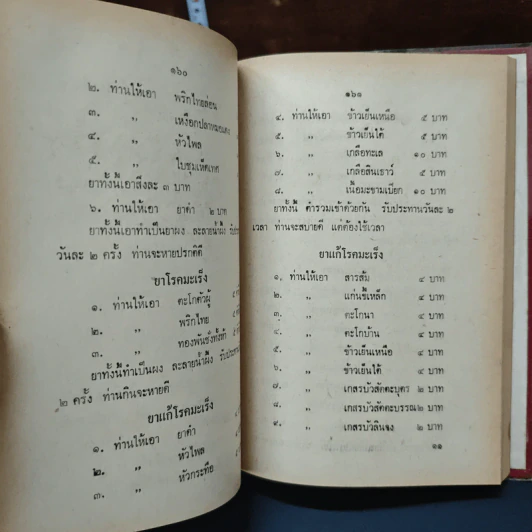 ๑๖๐
๒. ท่านให้เอา พริกไทยล่อน
๓. ,, เหงือกปลาหมอแดง
๔. ,, หัวไพล
๕. ,, ใบชุมเห็ดเทศ
ยาทั้งนี้เอาสิ่งละ ๓ บาท
๖. ท่านให้เอา ยาดำ ๒ บาท
ยาทั้งนี้เอาทำเป็นยาผง ละลายน้ำผึ้ง รับประ
วันละ ๒ ครั้ง ท่านจะหายปรกติดี
ยาโรคมะเร็ง
๑. ท่านให้เอา ตะโกตัวผู้
๒. ,, พริกไทย ๔
๓. ,, ทองพันชั่งทั้งห้า ๔
ยาทั้งนี้ทำเป็นผง ละลายน้ำผึ้ง รับประ
๒ ครั้ง ท่านกินจะหายดี
ยาแก้โรคมะเร็ง
๑. ท่านให้เอา ยาดำ
๒. ,, หัวไพล
๓. ,, หัวกระทือ
๑๖๑
๔. ท่านให้เอา ข้าวเย็นเหนือ ๕ บาท
๕. ,, ข้าวเย็นใต้ ๕ บาท
๖. ,, เกลือทะเล ๑๐ บาท
๗. ,, เกลือสินเธาว์ ๕ บาท
๘. ,, เนื้อมะขามเปียก ๑๐ บาท
ยาทั้งนี้ ตำรวมเข้าด้วยกัน รับประทานวันละ ๒
เวลา ท่านจะสบายดี แต่ต้องใช้เวลา
ยาแก้โรคมะเร็ง
๑. ท่านให้เอา สารส้ม ๔ บาท
๒. ,, แก่นขี้เหล็ก ๔ บาท
๓. ,, ตะโกนา ๔ บาท
๔. ,, ตะโกบ้าน ๔ บาท
๕. ,, ข้าวเย็นเหนือ ๔ บาท
๖. ,, ข้าวเย็นใต้ ๔ บาท
๗. ,, เกสรบัวสัตตะบุตร ๒ บาท
๘. ,, เกสรบัวสัตตะบรรณ ๒ บาท
๙. ,, เกสรบัวลินจง ๒ บาท
๑๑